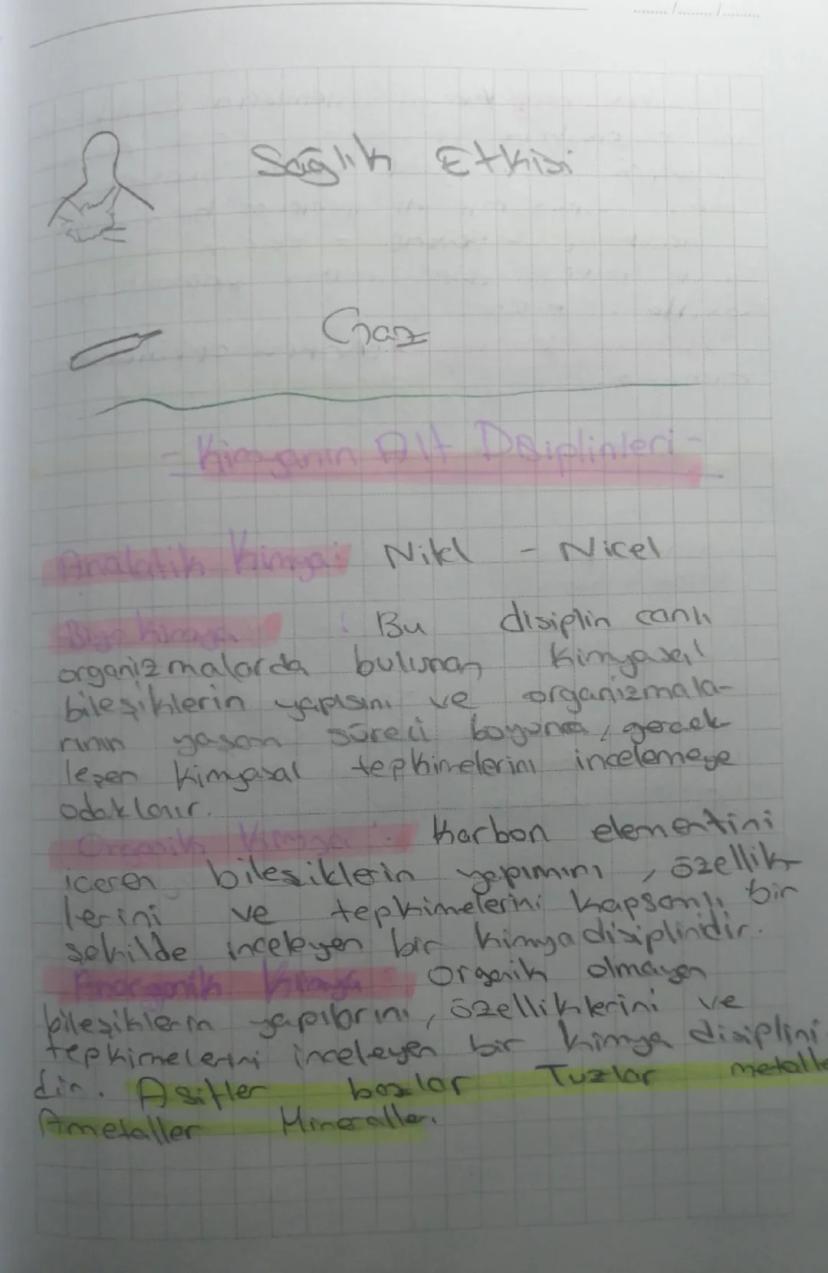 Sağlık Etkisi
Gaz
- Kimyanın Alt Disiplinleri -
Analitik Kimya: Nikl - Nicel
Biyo kimya : Bu disiplin canlı
organizmalarda bulunan kimyasal
bileşiklerin yapısını ve organizmala-
rının yaşam süreci boyunca, gerçek
leşen kimyasal tepkimelerini incelemeye
odaklanır.
Organik Kimya : Karbon elementini
içeren bileşiklerin yapımını, özellik-
lerini ve tepkimelerini kapsamlı bir
şekilde inceleyen bir kimya disiplinidir.
Anorganik Kimya Organik olmayan
bileşiklerin yapılarını, özelliklerini ve
tepkimelerini inceleyen bir kimya disiplini
dir. Asitler bazlar Tuzlar metalle
Ametaller Mineraller.